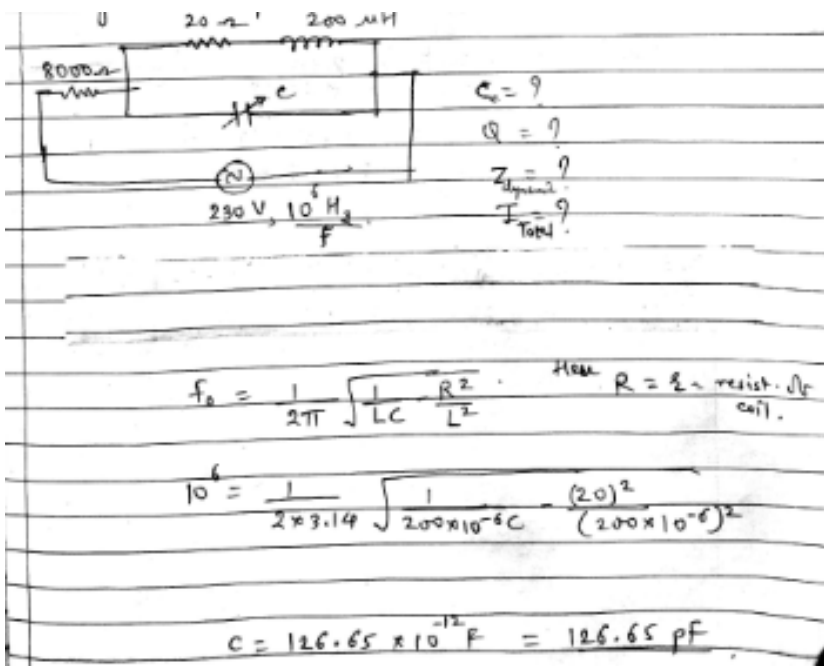 20 Ω 200 μH
8000 Ω
C
C = ?
Q = ?
Z = ?
230 V, 10⁶ Hz
f
I Total = ?
f₀ = 1/2π √(1/LC - R²/L²) . Here R = resist. of coil.
10⁶ = 1/(2×3.14) √(1/(200×10⁻⁶C) - (20)²/(200×10⁻⁶)²)
C = 126.65 × 10⁻¹² F = 126.65 pF